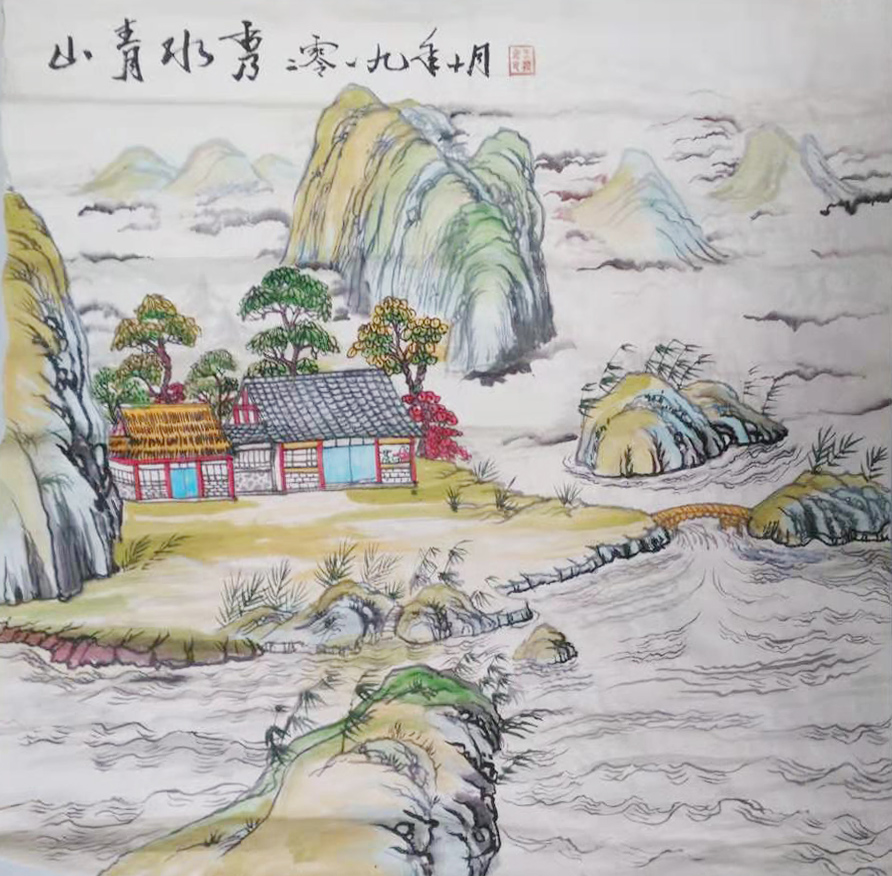 山青水秀 二零一九年十月